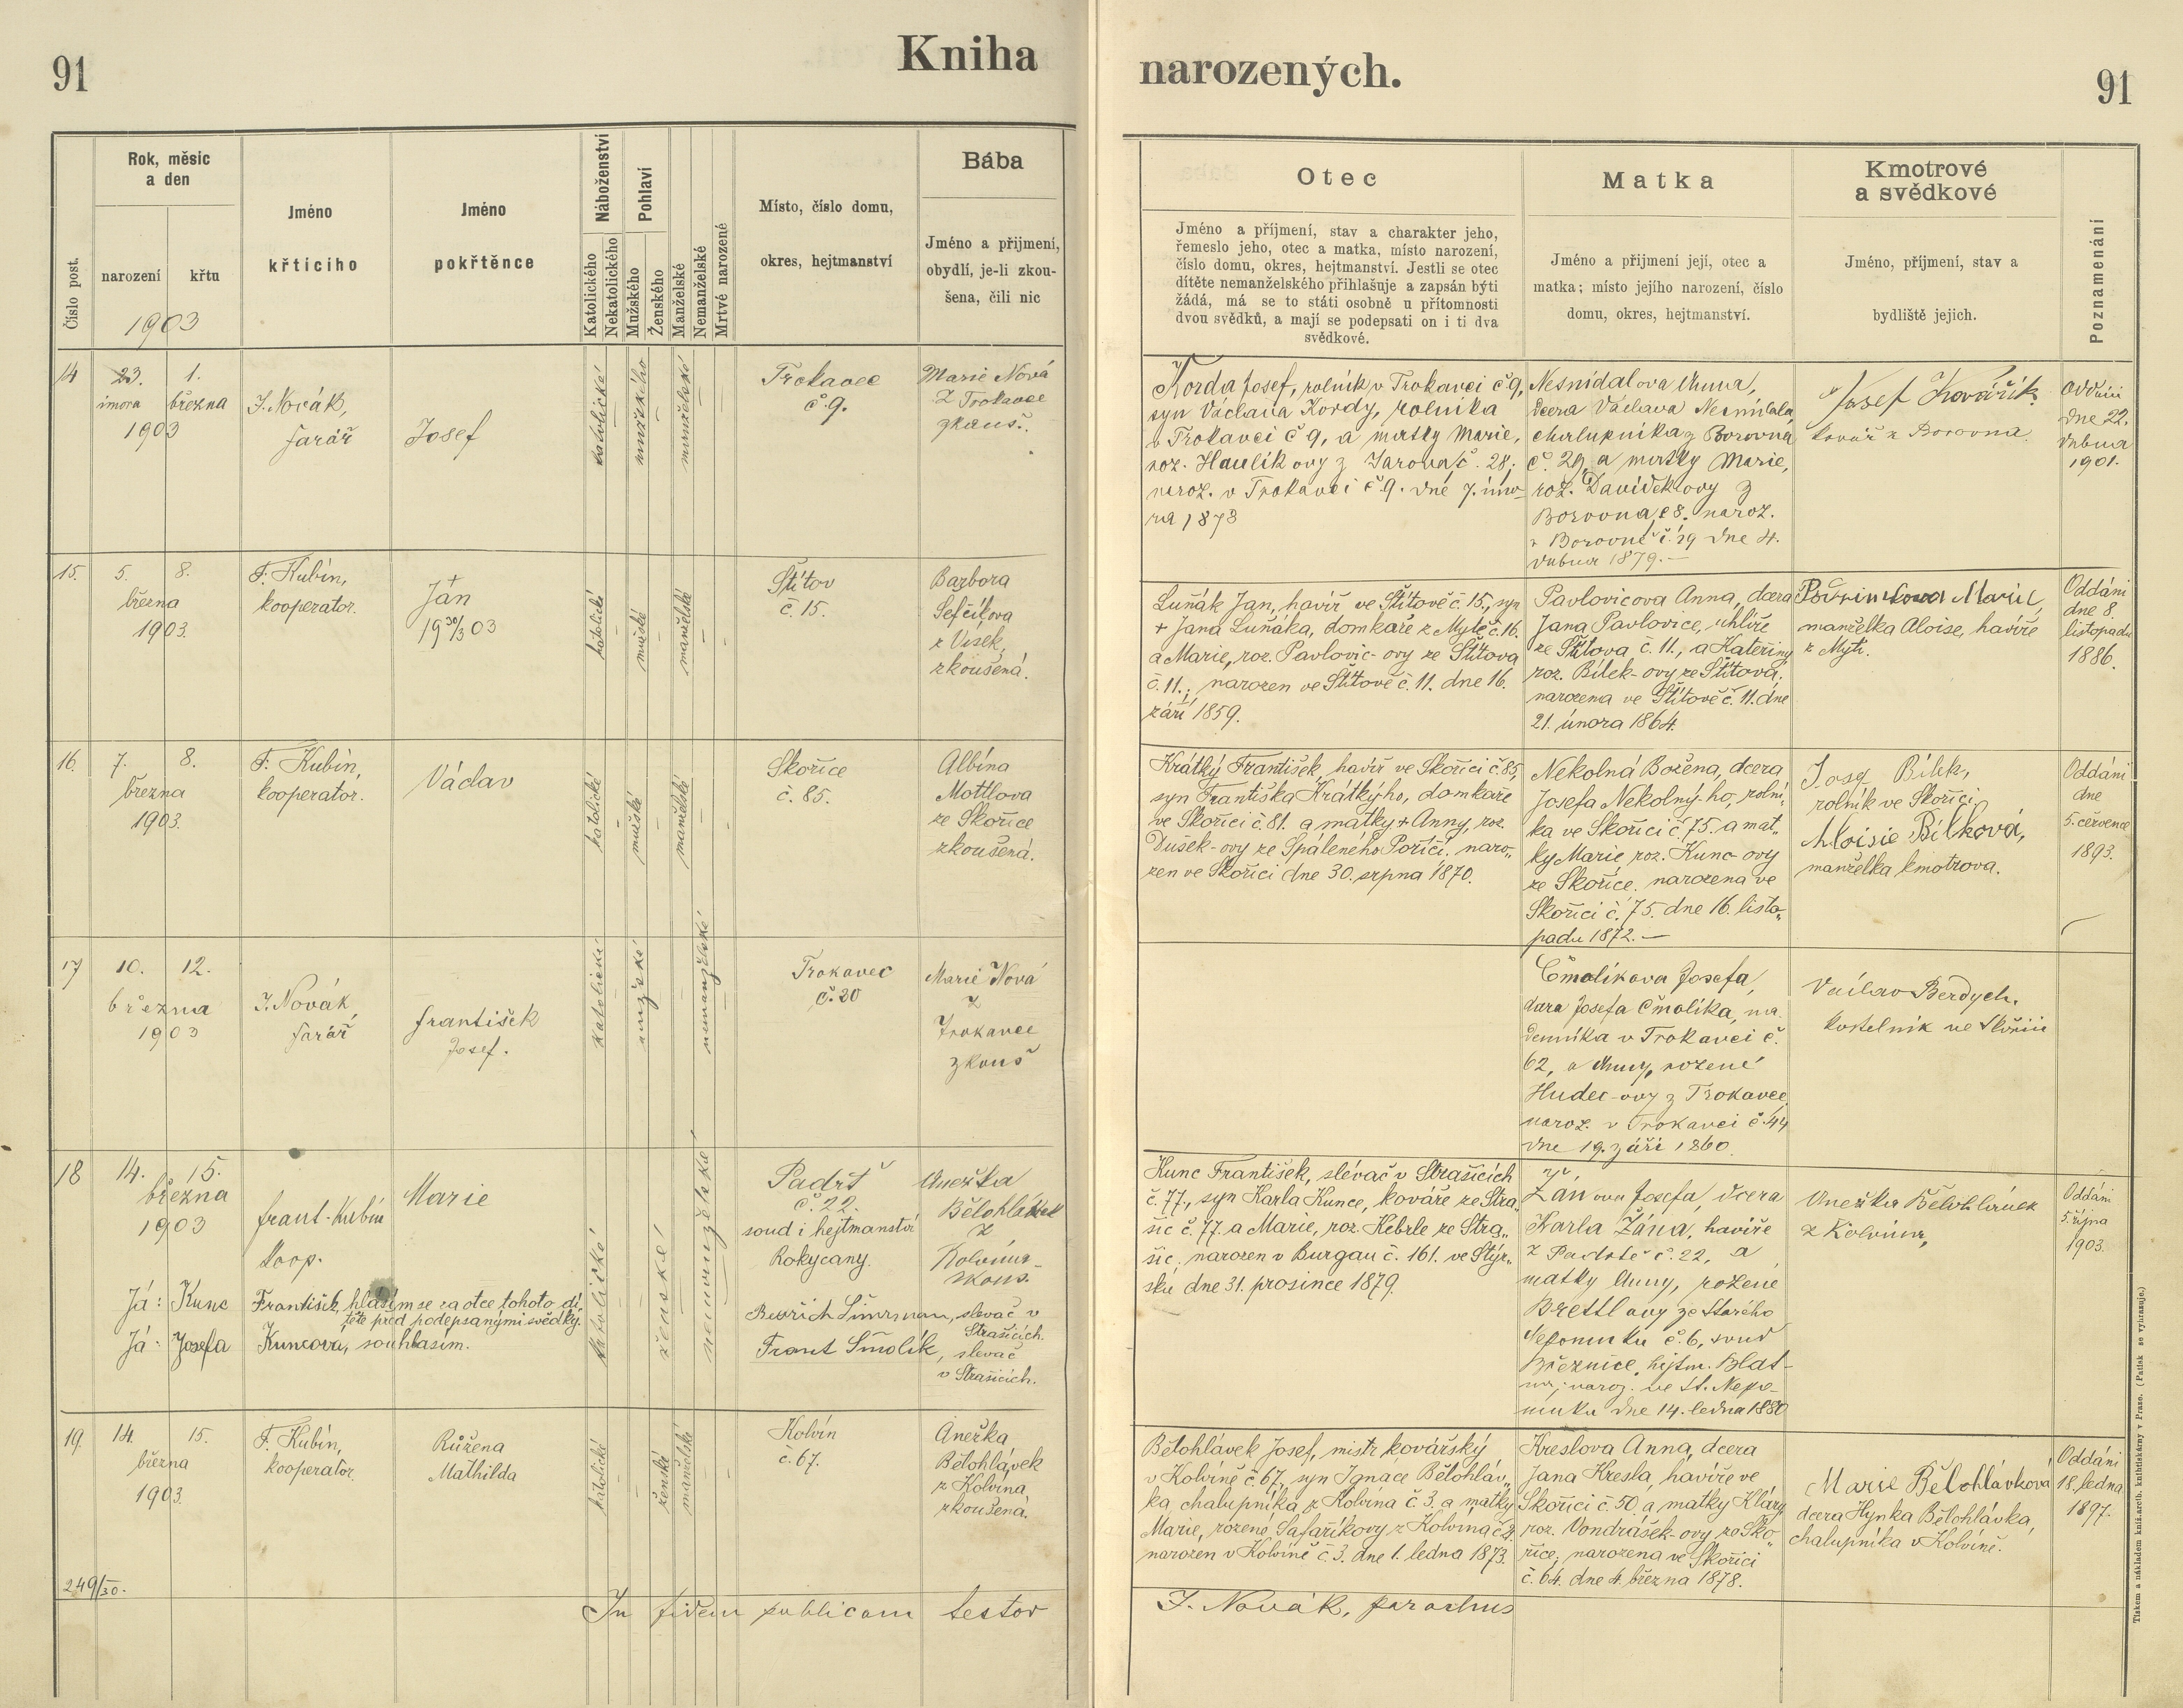 91
Kniha
narozených.
91
Číslo post.
Rok, měsic
a den
narození
křtu
1903
Jméno
křticiho
Jméno
pokřtěnce
Náboženství
Katolického
Nekatolického
Pohlaví
Mužského
Ženského
Manželské
Nemanželské
Mrtvé narozené
Místo, číslo domu,
okres, hejtmanství
Bába
Jméno a přijmení,
obydlí, je-li zkou-
šena, čili nic
Otec
Jméno a příjmení, stav a charakter jeho,
řemeslo jeho, otec a matka, místo narození,
číslo domu, okres, hejtmanství. Jestli se otec
dítěte nemanželského přihlašuje a zapsán býti
žádá, má se to státi osobně u přítomnosti
dvou svědků, a mají se podepsati on i ti dva
svědkové.
Matka
Jméno a přijmení její, otec a
matka; místo jejího narození, číslo
domu, okres, hejtmanství.
Kmotrové
a svědkové
Jméno, příjmení, stav a
bydliště jejich.
Poznamenání
14
23.
února
1.
března
1903
J. Novák,
farář
Josef
katolické
mužského
manželské
Trokavec
č. 9.
Marie Nová
z Trokavce
zkouš.
Korda Josef, rolník v Trokavci č 9,
syn Václava Kordy, rolníka
v Trokavci č 9, a matky Marie,
roz. Haulíkovy z Jarova č. 28;
naroz. v Trokavci č 9. dne 7. úno-
ra 1873
Nesnídalova Anna,
dcera Václava Nesnídala
chalupníka z Borovna
č. 29, a matky Marie,
roz. Davídekovy z
Borovna č 8. naroz.
v Borovně č. 29 dne 4.
dubna 1879.—
Josef Kovářík
kovář z Borovna.
Oddáni
dne 22.
dubna
1901.
15.
5.
8.
března
1903.
F. Kubín,
kooperator.
Ján
+ 19 30/3 03
katolické
mužské
manželské
Štítov
č. 15.
Barbora
Šefčíkova
z Vísek,
zkoušená.
Luňák Jan, havíř ve Štítově č. 15., syn
+ Jana Luňáka, domkaře z Mytě č. 16.
a Marie, roz. Pavlovic-ovy ze Štítova
č. 11.; narozen ve Štítově č. 11. dne 16.
září 1859.
Pavlovicova Anna, dcera
Jana Pavlovice, uhlíře
ze Štítova č. 11., a Kateřiny
roz. Bílek-ovy ze Štítova,
narozena ve Štítově č. 11. dne
21. února 1864.
Marie,
manželka Aloise, havíře
z Mýti.
Oddáni
dne 8.
listopadu
1886.
16.
7.
8.
března
1903.
F. Kubín,
kooperator.
Václav
katolické
mužské
manželské
Skořice
č. 85.
Albína
Mottlova
ze Skořice
zkoušená.
Krátký František, havíř ve Skořici č. 85,
syn Františka Krátký-ho, domkaře
ve Skořici č. 81. a matky + Anny, roz.
Dušek-ovy ze Spáleného Poříčí. naro-
zen ve Skořici dne 30. srpna 1870.
Nekolná Božena, dcera
Josefa Nekolný-ho, rolní-
ka ve Skořici č. 75. a mat-
ky Marie roz. Kunc-ovy
ze Skořice. narozena ve
Skořici č. 75. dne 16. listo-
padu 1872.—
Josef Bílek,
rolník ve Skořici
Aloisie Bílková,
manželka kmotrova.
Oddáni
dne
5. července
1893.
17
10.
12.
března
1903
J. Novák,
farář
František
Josef.
katolické
mužské
nemanželské
Trokavec
č. 20
Marie Nová
z
Trokavce
zkouš
Čmolíkova Josefa,
dcera Josefa Čmolíka, ná-
denníka v Trokavci č.
62, a Anny, rozené
Hudec-ovy z Trokavce,
naroz. v Trokavci č. 44
dne 19. září 1860.
Václav Berdych,
kostelník ve Skořici
18
14.
15.
března
1903
Frant. Kubín
koop.
Marie
katolické
ženské
nemanželské
Padrť
č. 22.
soud i hejtmanství
Rokycany.
Anežka
Bělohlávek
z
Kolvína
zkouš.
Já: Kunc František, hlásím se za otce tohoto dí-
těte před podepsanými svědky.
Já: Josefa Kuncova, souhlasím.
Bedřich Šimrman, slevač v
Strašicích.
Frant Šmolík, slevač
v Strašicích.
Kunc František, slévač v Strašicích
č. 77., syn Karla Kunce, kováře ze Stra-
šic č. 77. a Marie, roz. Hebrle ze Stra-
šic, narozen v Burgau č. 161. ve Štýr-
sku dne 31. prosince 1879.
Žánova Josefa, dcera
Karla Žána, havíře
z Padrtě č. 22, a
matky Anny, rozené
Brettlovy ze Starého
Nepomuku č. 6, soud
Březnice, hejtm. Blat-
na; naroz. ve St. Nepo-
muku dne 14. ledna 1880
Anežka Bělohlávek
z Kolvína,
Oddáni
5. října
1903.
19.
14.
15.
března
1903.
F. Kubín,
kooperator.
Růžena
Mathilda
katolické
ženské
manželské
Kolvín
č. 67.
Anežka
Bělohlávek
z Kolvína,
zkoušená.
Bělohlávek Josef, mistr kovářský
v Kolvíně č. 67., syn Ignáce Bělohláv-
ka, chalupníka z Kolvína č. 3. a matky
Marie, rozené Šafaříkovy z Kolvína č. 2.
narozen v Kolvíně č. 3. dne 1. ledna 1873.
Kreslova Anna, dcera
Jana Kresla, havíře ve
Skořici č. 50. a matky Kláry
roz. Vondrášek-ovy ze Sko-
řice, narozena ve Skořici
č. 64. dne 4. března 1878.
Marie Bělohlávková
dcera Hynka Bělohlávka,
chalupníka v Kolvíně.
Oddáni
18. ledna
1897.
249/30.
In fidem publicam testor
J. Novák, parochus
Tiskem a nákladem kníž. arcib. knihtiskárny v Praze. (Patisk se vyhrazuje.)